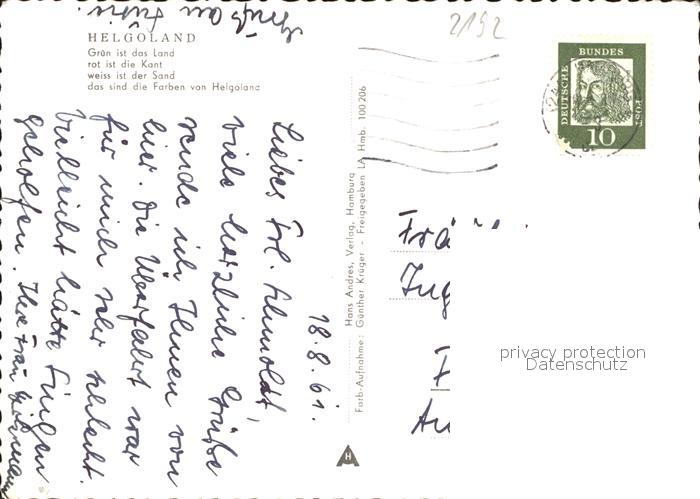 2192
HELGOLAND
Grün ist das Land
rot ist die Kant
weiss ist der Sand
das sind die Farben von Helgoland
Hans Andres, Verlag, Hamburg
Farb-Aufnahme: Günther Krüger - Freigegeben LA Hmb. 100 206
H
DEUTSCHE BUNDES POST
10
18.8.61.
Liebes Frl. Schmoldt,
viele herzliche Grüße
sende ich Ihnen von
hier. Die Überfahrt war
für mich sehr schlecht.
Vielleicht hätte Singen
geholfen. Ihre Frau
Gruß an
privacy protection
Datenschutz